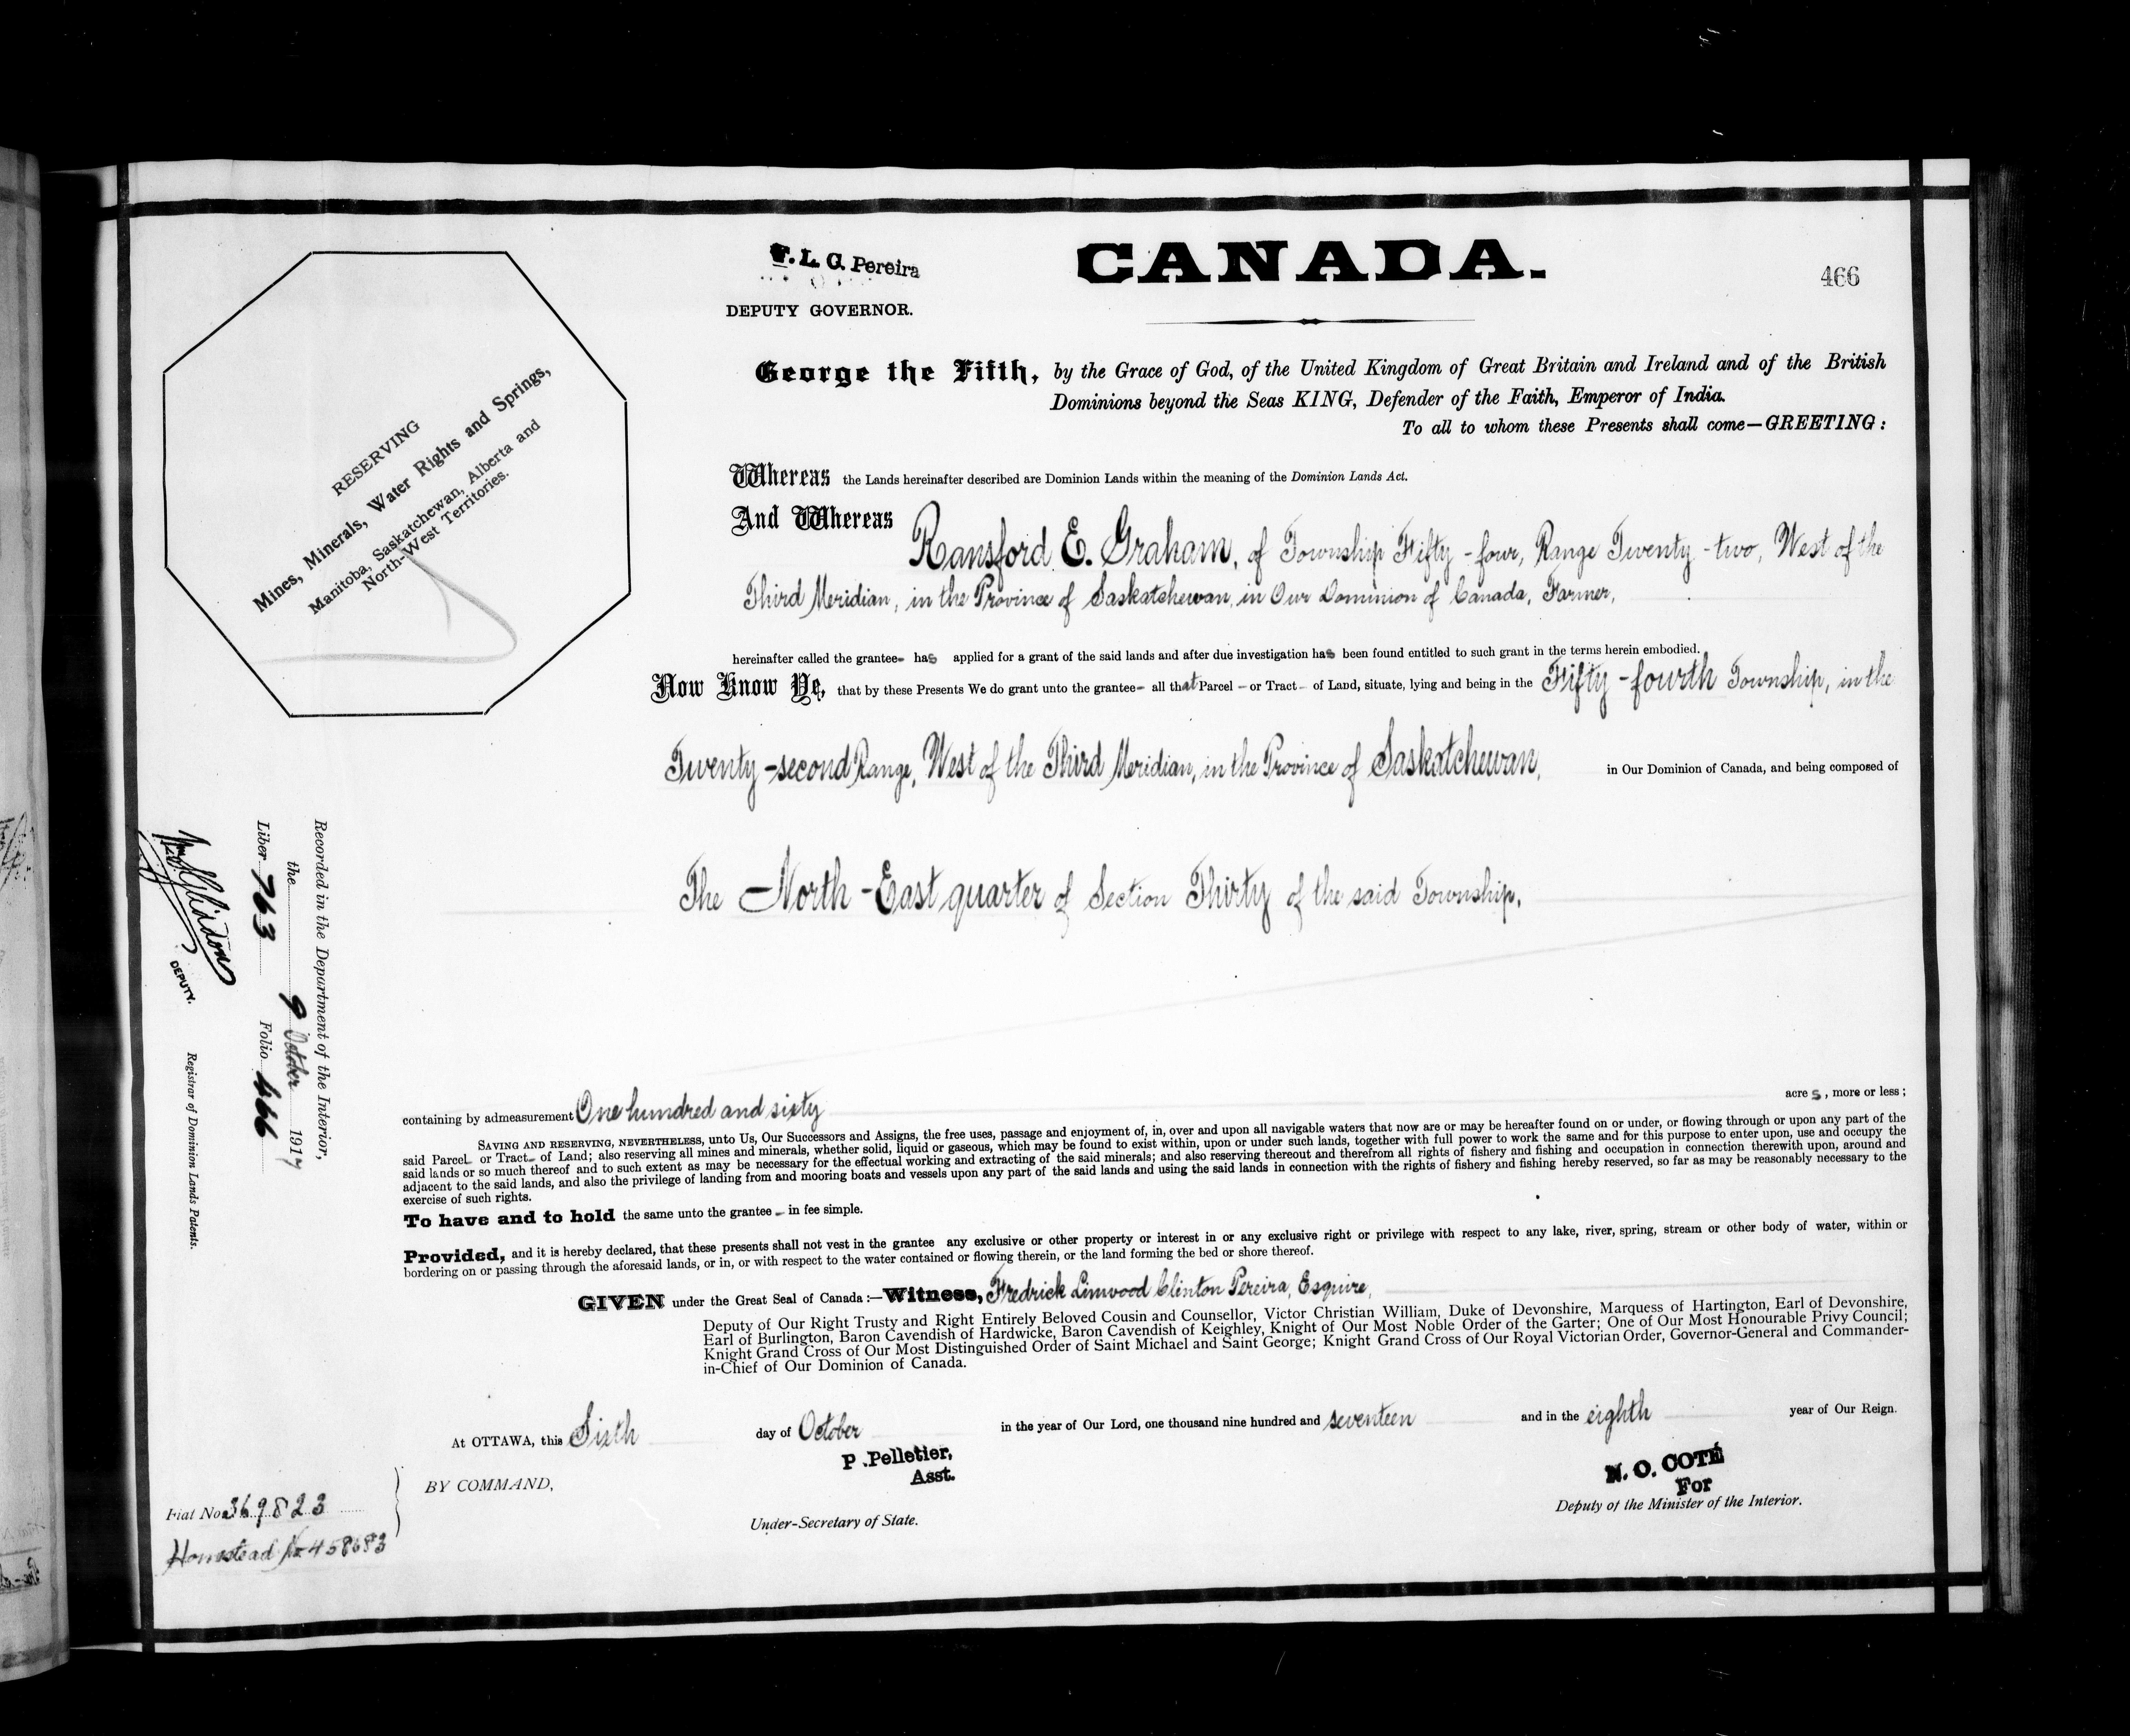 F. L. C. Pereira
DEPUTY GOVERNOR.
CANADA.
466
RESERVING
Mines, Minerals, Water Rights and Springs,
Manitoba, Saskatchewan, Alberta and
North-West Territories.
George the Fifth, by the Grace of God, of the United Kingdom of Great Britain and Ireland and of the British
Dominions beyond the Seas KING, Defender of the Faith, Emperor of India.
To all to whom these Presents shall come—GREETING:
Whereas the Lands hereinafter described are Dominion Lands within the meaning of the Dominion Lands Act.
And Whereas Ransford E. Graham, of Township Fifty-four, Range Twenty-two, West of the
Third Meridian, in the Province of Saskatchewan, in Our Dominion of Canada, Farmer,
hereinafter called the grantee- has applied for a grant of the said lands and after due investigation has been found entitled to such grant in the terms herein embodied.
Now Know Ye, that by these Presents We do grant unto the grantee- all that Parcel - or Tract - of Land, situate, lying and being in the Fifty-fourth Township, in the
Twenty-second Range, West of the Third Meridian, in the Province of Saskatchewan, in Our Dominion of Canada, and being composed of
The North-East quarter of Section Thirty of the said Township,
Recorded in the Department of the Interior,
the 9 October 1917
Liber 763 Folio 466
DEPUTY.
Registrar of Dominion Lands Patents.
containing by admeasurement One hundred and sixty acres, more or less;
SAVING AND RESERVING, NEVERTHELESS, unto Us, Our Successors and Assigns, the free uses, passage and enjoyment of, in, over and upon all navigable waters that now are or may be hereafter found on or under, or flowing through or upon any part of the
said Parcel- or Tract- of Land; also reserving all mines and minerals, whether solid, liquid or gaseous, which may be found to exist within, upon or under such lands, together with full power to work the same and for this purpose to enter upon, use and occupy the
said lands or so much thereof and to such extent as may be necessary for the effectual working and extracting of the said minerals; and also reserving thereout and therefrom all rights of fishery and fishing and occupation in connection therewith upon, around and
adjacent to the said lands, and also the privilege of landing from and mooring boats and vessels upon any part of the said lands and using the said lands in connection with the rights of fishery and fishing hereby reserved, so far as may be reasonably necessary to the
exercise of such rights.
To have and to hold the same unto the grantee - in fee simple.
Provided, and it is hereby declared, that these presents shall not vest in the grantee any exclusive or other property or interest in or any exclusive right or privilege with respect to any lake, river, spring, stream or other body of water, within or
bordering on or passing through the aforesaid lands, or in, or with respect to the water contained or flowing therein, or the land forming the bed or shore thereof.
GIVEN under the Great Seal of Canada:—Witness, Fredrick Linwood Clinton Pereira, Esquire,
Deputy of Our Right Trusty and Right Entirely Beloved Cousin and Counsellor, Victor Christian William, Duke of Devonshire, Marquess of Hartington, Earl of Devonshire,
Earl of Burlington, Baron Cavendish of Hardwicke, Baron Cavendish of Keighley, Knight of Our Most Noble Order of the Garter; One of Our Most Honourable Privy Council;
Knight Grand Cross of Our Most Distinguished Order of Saint Michael and Saint George; Knight Grand Cross of Our Royal Victorian Order, Governor-General and Commander-
in-Chief of Our Dominion of Canada.
At OTTAWA, this Sixth day of October in the year of Our Lord, one thousand nine hundred and seventeen and in the eighth year of Our Reign.
BY COMMAND,
P. Pelletier,
Asst.
Under-Secretary of State.
N. O. COTÉ
For
Deputy of the Minister of the Interior.
Fiat No. 369823
Homestead No 458683